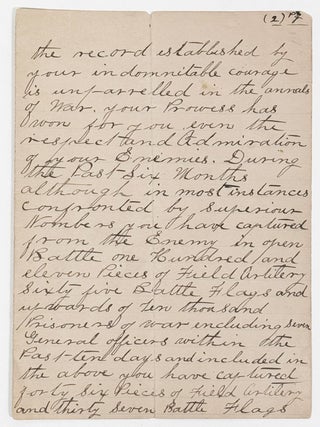 (2)
the record established by
your indomnitable courage
is unparrelled in the annals
of War. your Prowess has
won for you even the
respect and Admiration
of your Enemies. During
the Past Six Months
although in most instances
confronted by Superiour
Nombers you have captured
from the Enemy in open
Battle one Hundred and
eleven Pieces of Field Artilery
Sixty five Battle Flags and
upwards of ten thousand
Prisoners of war including Seven
General officers within the
Past ten days and included in
the above you have captured
forty Six Pieces of Field Artilery
and thirty Seven Battle Flags